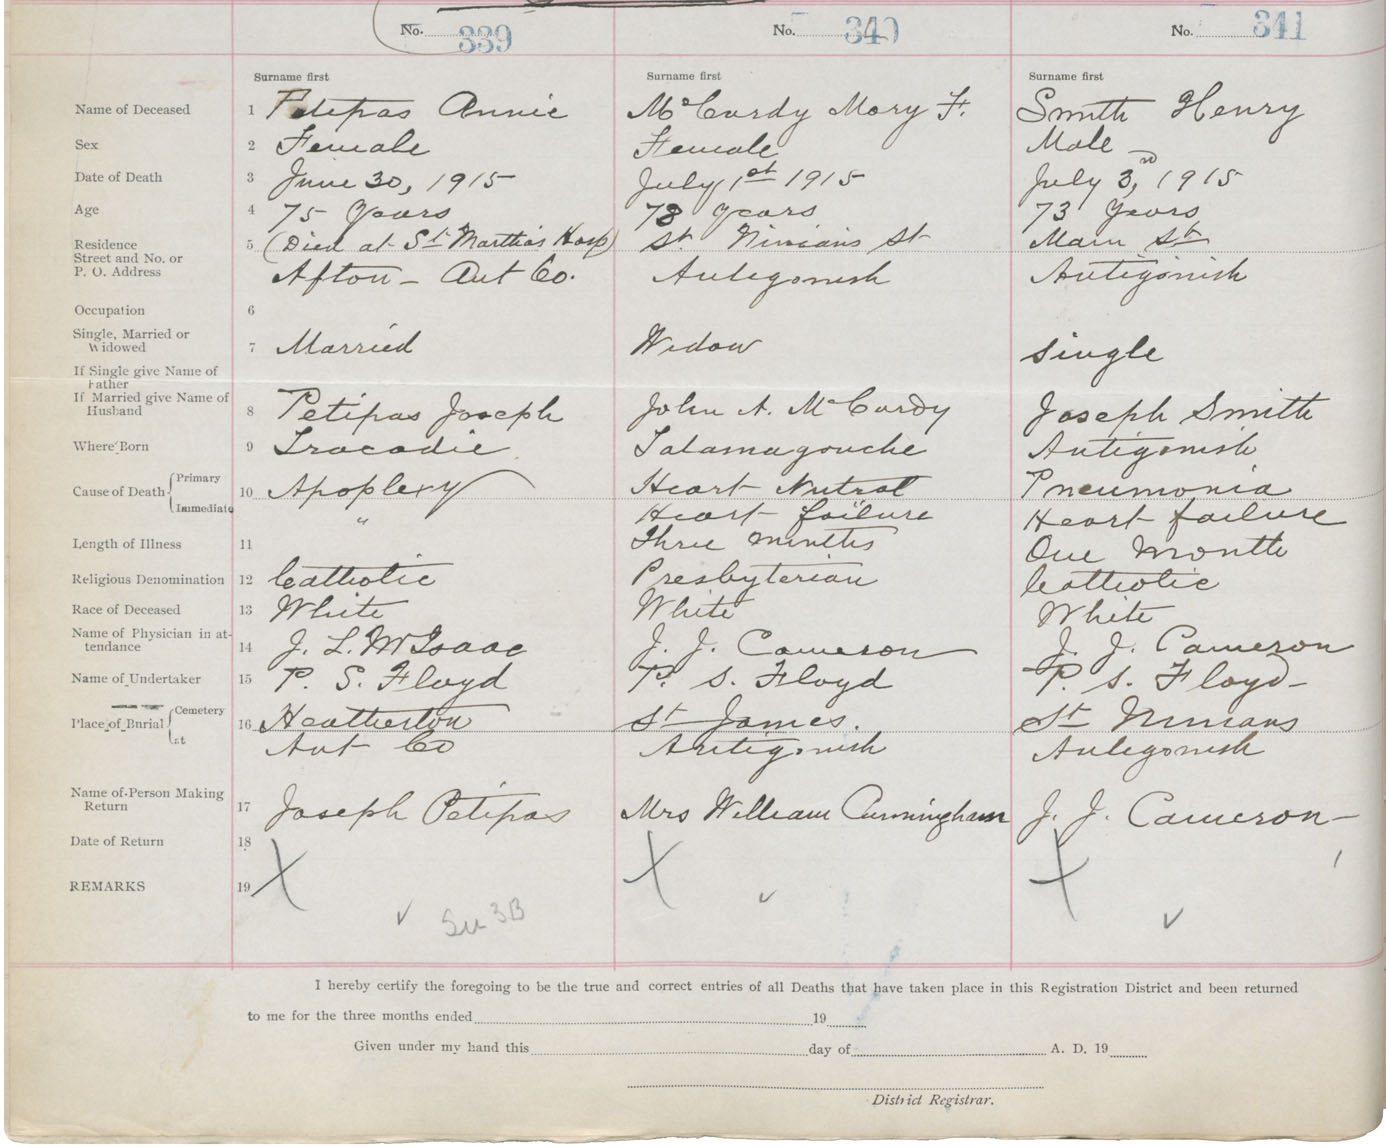 No. 339 No. 340 No. 341
Surname first Surname first Surname first
Name of Deceased 1 Petipas Annie McCurdy Mary F. Smith Henry
Sex 2 Female Female Male
Date of Death 3 June 30, 1915 July 1st 1915 July 3rd, 1915
Age 4 75 Years 78 years 73 Years
Residence 5 (Died at St Martha's Hosp) St. Ninians St Main St
Street and No. or
P. O. Address Afton - Ant Co. Antigonish Antigonish
Occupation 6
Single, Married or
Widowed 7 Married Widow Single
If Single give Name of
Father
If Married give Name of
Husband 8 Petipas Joseph John A. McCurdy Joseph Smith
Where Born 9 Tracadie Tatamagouche Antigonish
Cause of Death Primary 10 Apoplexy Heart Mitral Pneumonia
Immediate " Heart failure Heart failure
Length of Illness 11 Three months One Month
Religious Denomination 12 Catholic Presbyterian Catholic
Race of Deceased 13 White White White
Name of Physician in at-
tendance 14 J. L. McIsaac J. J. Cameron J. J. Cameron
Name of Undertaker 15 P. S. Floyd P. S. Floyd P. S. Floyd
Place of Burial Cemetery 16 Heatherton St James. St Ninians
at Ant Co Antigonish Antigonish
Name of Person Making
Return 17 Joseph Petipas Mrs William Cunningham J. J. Cameron
Date of Return 18
REMARKS 19 X X X
3B
I hereby certify the foregoing to be the true and correct entries of all Deaths that have taken place in this Registration District and been returned
to me for the three months ended 19
Given under my hand this day of A. D. 19
District Registrar.